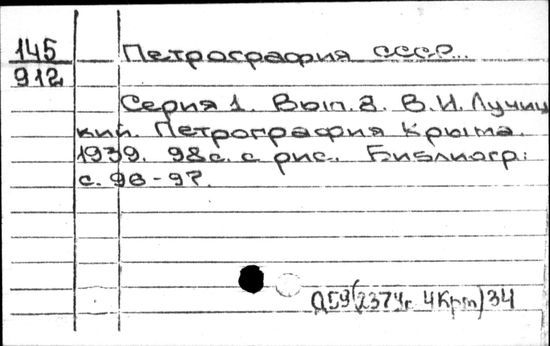 145
912
Петрография СССР...
Серия 1. Вып. 8. В.И. Лучиц
кий. Петрография Крыма.
1939. 98с. с рис. Библиогр:
с. 96-97.
Д59(2374г 4Крт)34